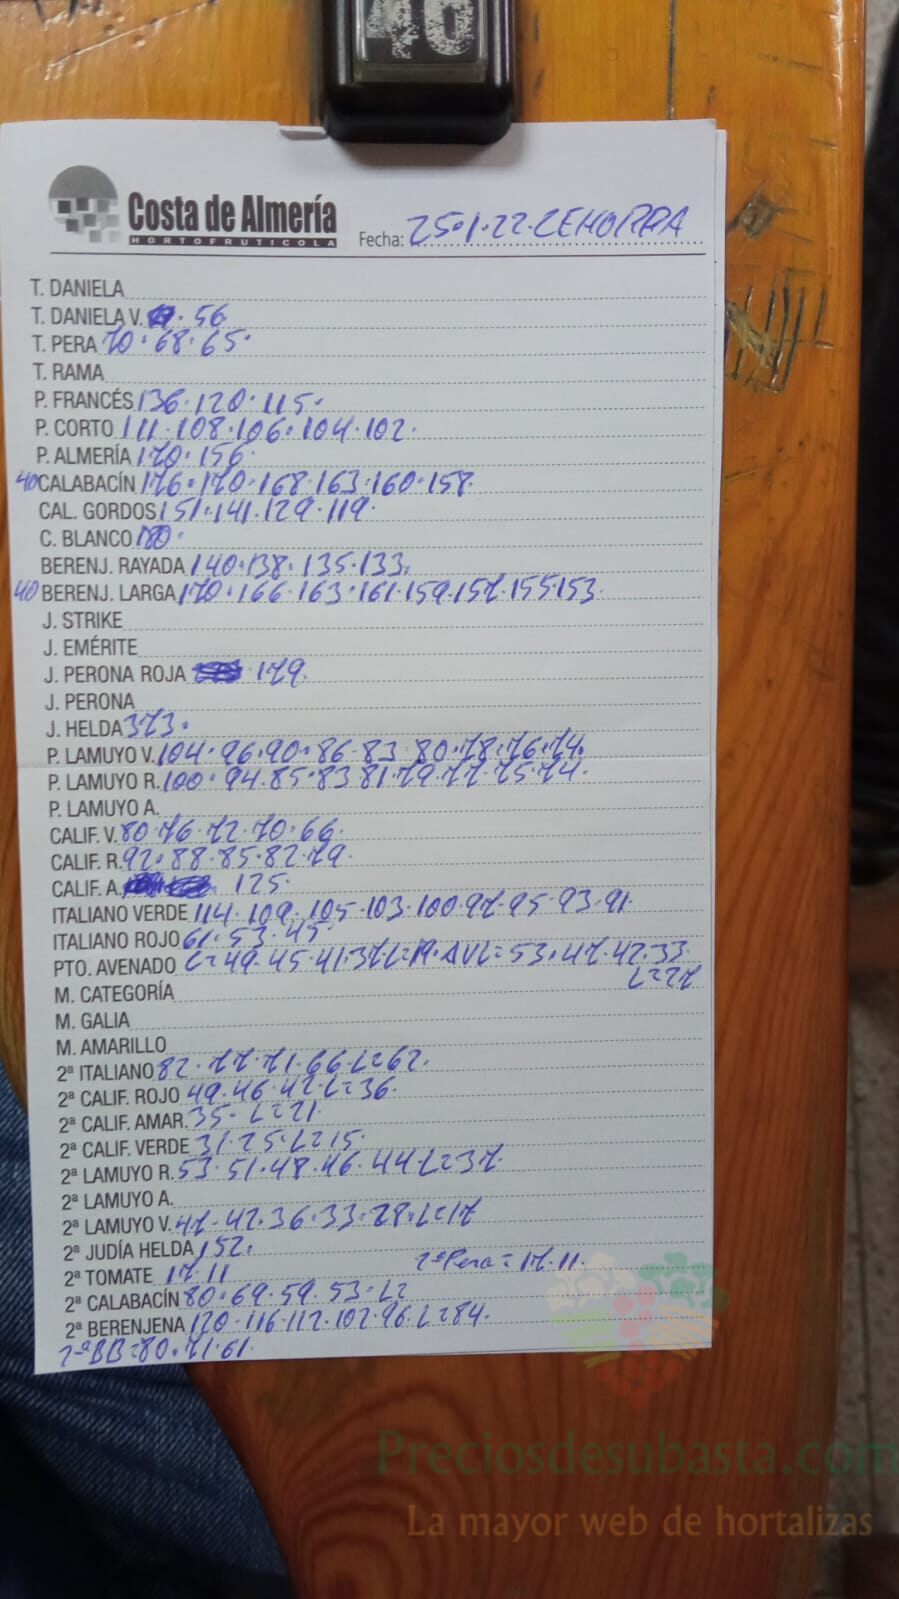 40
Costa de Almería
HORTOFRUTICOLA
Fecha: 25·1·22·
T. DANELA
T. DANIELA V. 56
T. PERA 70·68·65·
T. RAMA
P. FRANCÉS 136·120·115·
P. CORTO 111·108·106·104·102·
P. ALMERÍA 170·156·
40 CALABACÍN 176·170·168·163·160·158·
CAL. GORDOS 151·141·129·119·
C. BLANCO 180·
BERENJ. RAYADA 140·138·135·133·
40 BERENJ. LARGA 170·166·163·161·159·157·155·153·
J. STRIKE
J. EMÉRITE
J. PERONA ROJA 179·
J. PERONA
J. HELDA 373·
P. LAMUYO V. 104·96·90·86·83·80·78·76·74·
P. LAMUYO R. 100·94·85·83·81·79·77·75·74·
P. LAMUYO A.
CALIF. V. 80·76·72·70·66·
CALIF. R. 92·88·85·82·79·
CALIF. A. 125·
ITALIANO VERDE 114·109·105·103·100·97·95·93·91·
ITALIANO ROJO 61·53·45·
PTO. AVENADO C=49·45·41·37·L=19·AVL=53·47·42·33·
L=27
M. CATEGORÍA
M. GALIA
M. AMARILLO
2ª ITALIANO 82·77·71·66·L=62·
2ª CALIF. ROJO 49·46·42·L=36·
2ª CALIF. AMAR. 35·L=21
2ª CALIF. VERDE 31·25·L=15·
2ª LAMUYO R. 53·51·48·46·44·L=37·
2ª LAMUYO A.
2ª LAMUYO V. 47·42·36·33·28·L=17
2ª JUDÍA HELDA 152·
2ª TOMATE 17·11 2ªPera=17·11·
2ª CALABACÍN 80·69·59·53·L=
2ª BERENJENA 120·116·112·102·96·L=84·
2ªBB=80·71·61·
Preciosdesubasta.com
La mayor web de hortalizas